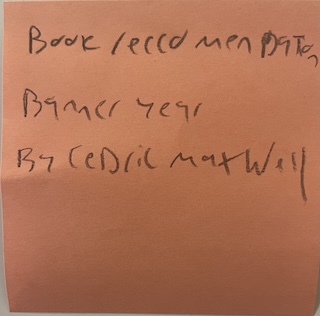 Book reccomendation
Bamer year
By CeDric maxwell